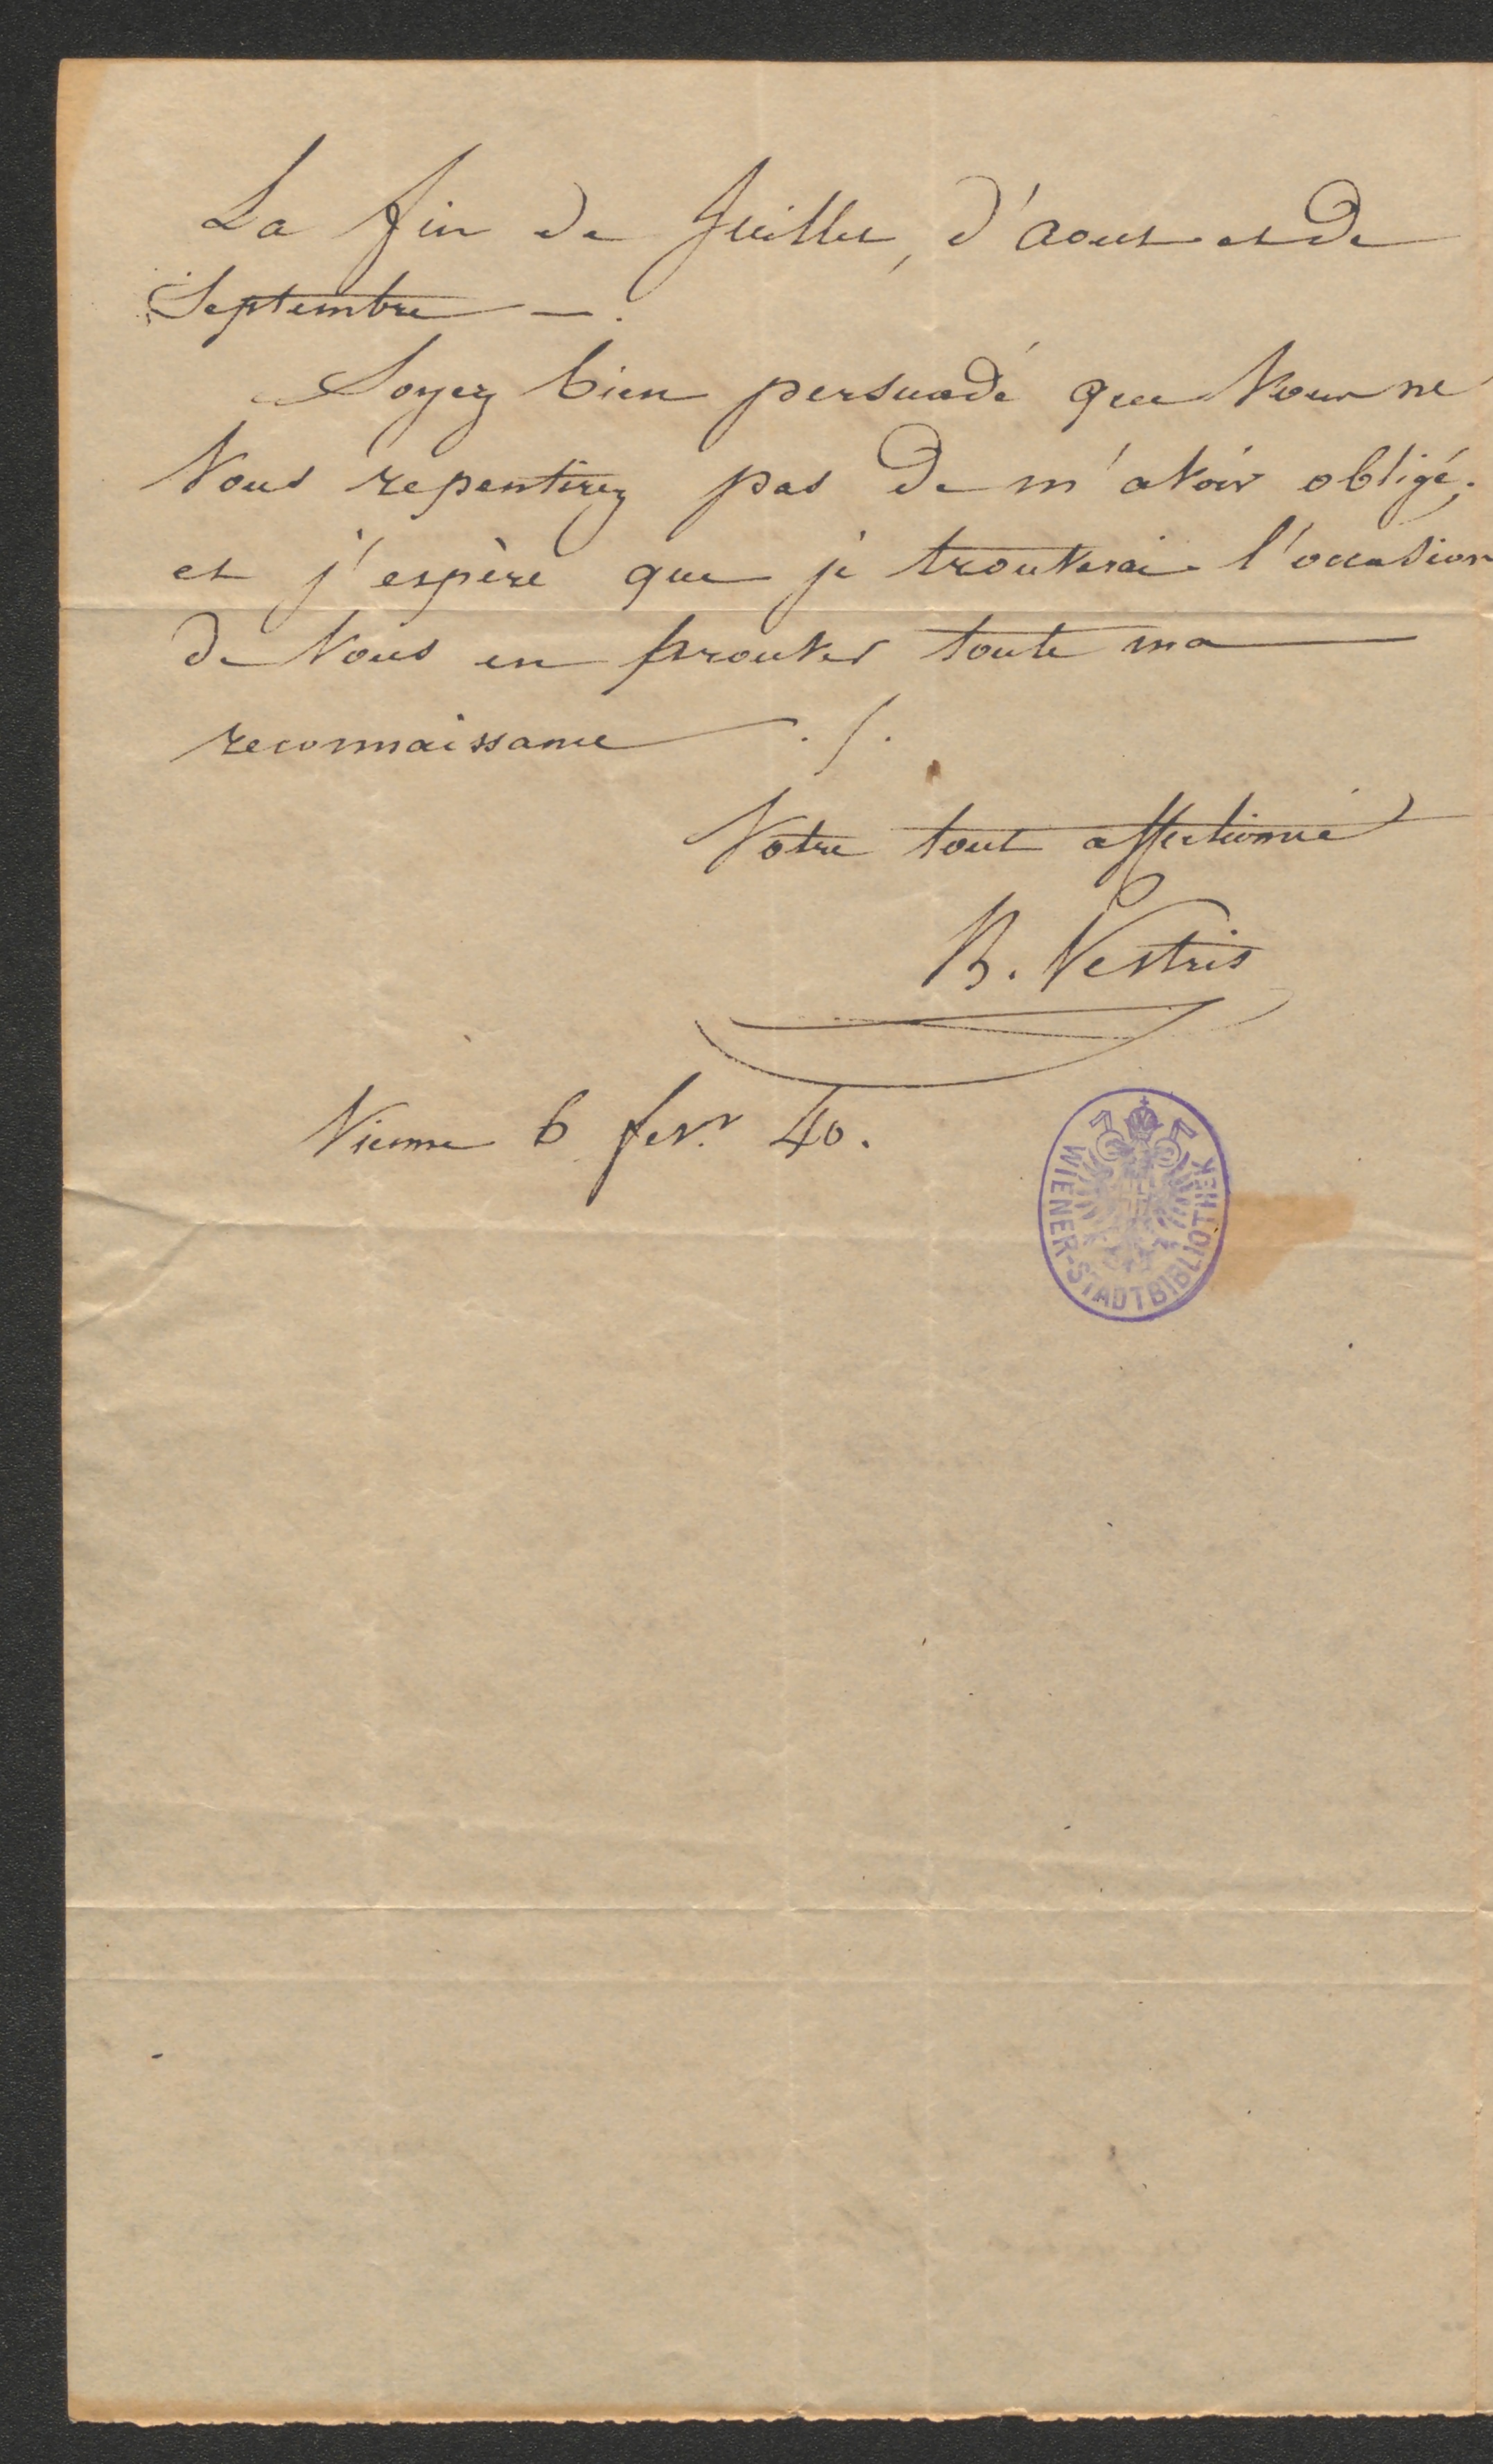 La fin de Juillet, d'aout et de
Septembre —.
Soyez bien persuadé que Vous ne
Vous repentirez pas de m'avoir obligé;
et j'espère que je trouverai l'occasion
de Vous en prouver toute ma
reconnaissance ./.
Votre tout affectionné
B. Vestris
Vienne 6 fevr. 40.
WIENER-STADTBIBLIOTHEK